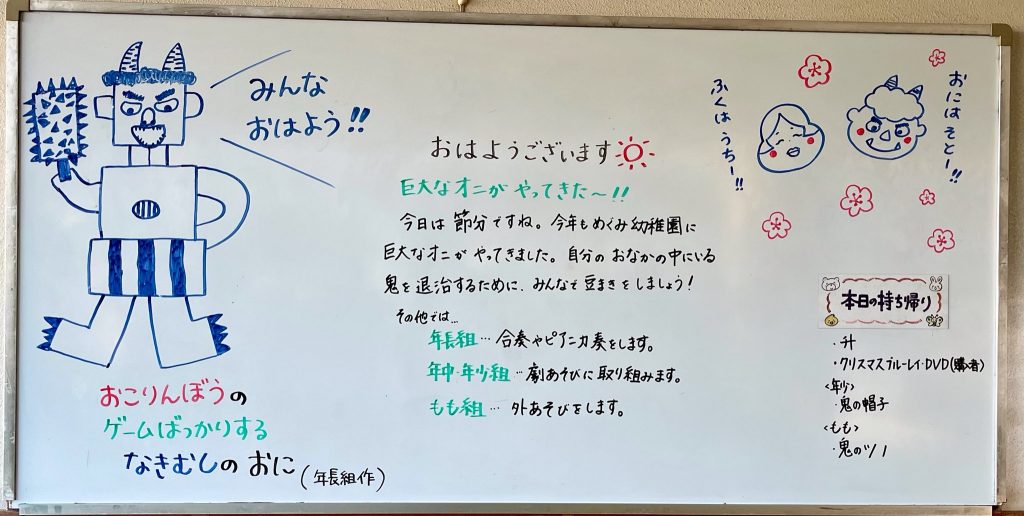 みんな
おはよう!!
おこりんぼうの
ゲームばっかりする
なきむしの おに
(年長組作)
おはようございます
巨大なオニが やってきた〜!!
今日は 節分ですね。今年もめぐみ幼稚園に
巨大なオニが やってきました。自分の おなかの中にいる
鬼を退治するために、みんなで 豆まきをしましょう!
その他では…
年長組…合奏やピアニカ奏をします。
年中・年少組…劇あそびに取り組みます。
もも組…外あそびをします。
おにはそとー!!
ふくはうちー!!
本日の持ち帰り
・升
・クリスマスブルーレイ・DVD(購入者)
<年少>
・鬼の帽子
<もも>
・鬼のツノ